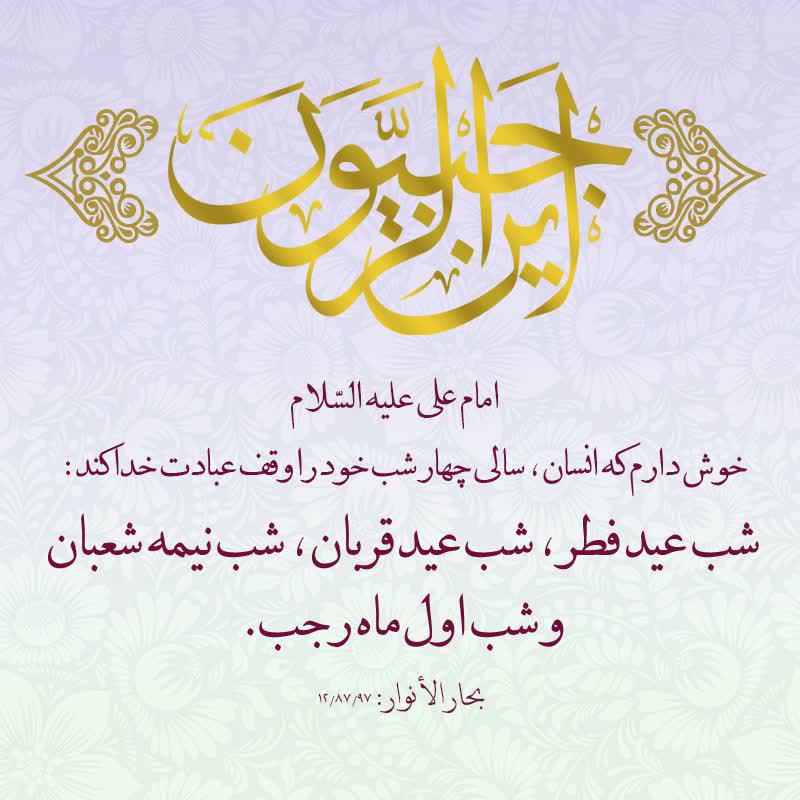 این الرجبیون
امام علی علیه السّلام
خوش دارم که انسان، سالی چهار شب خود را وقف عبادت خدا کند:
شب عید فطر، شب عید قربان، شب نیمه شعبان
و شب اول ماه رجب.
بحار الأنوار: ۱۲/۸۷/۹۷